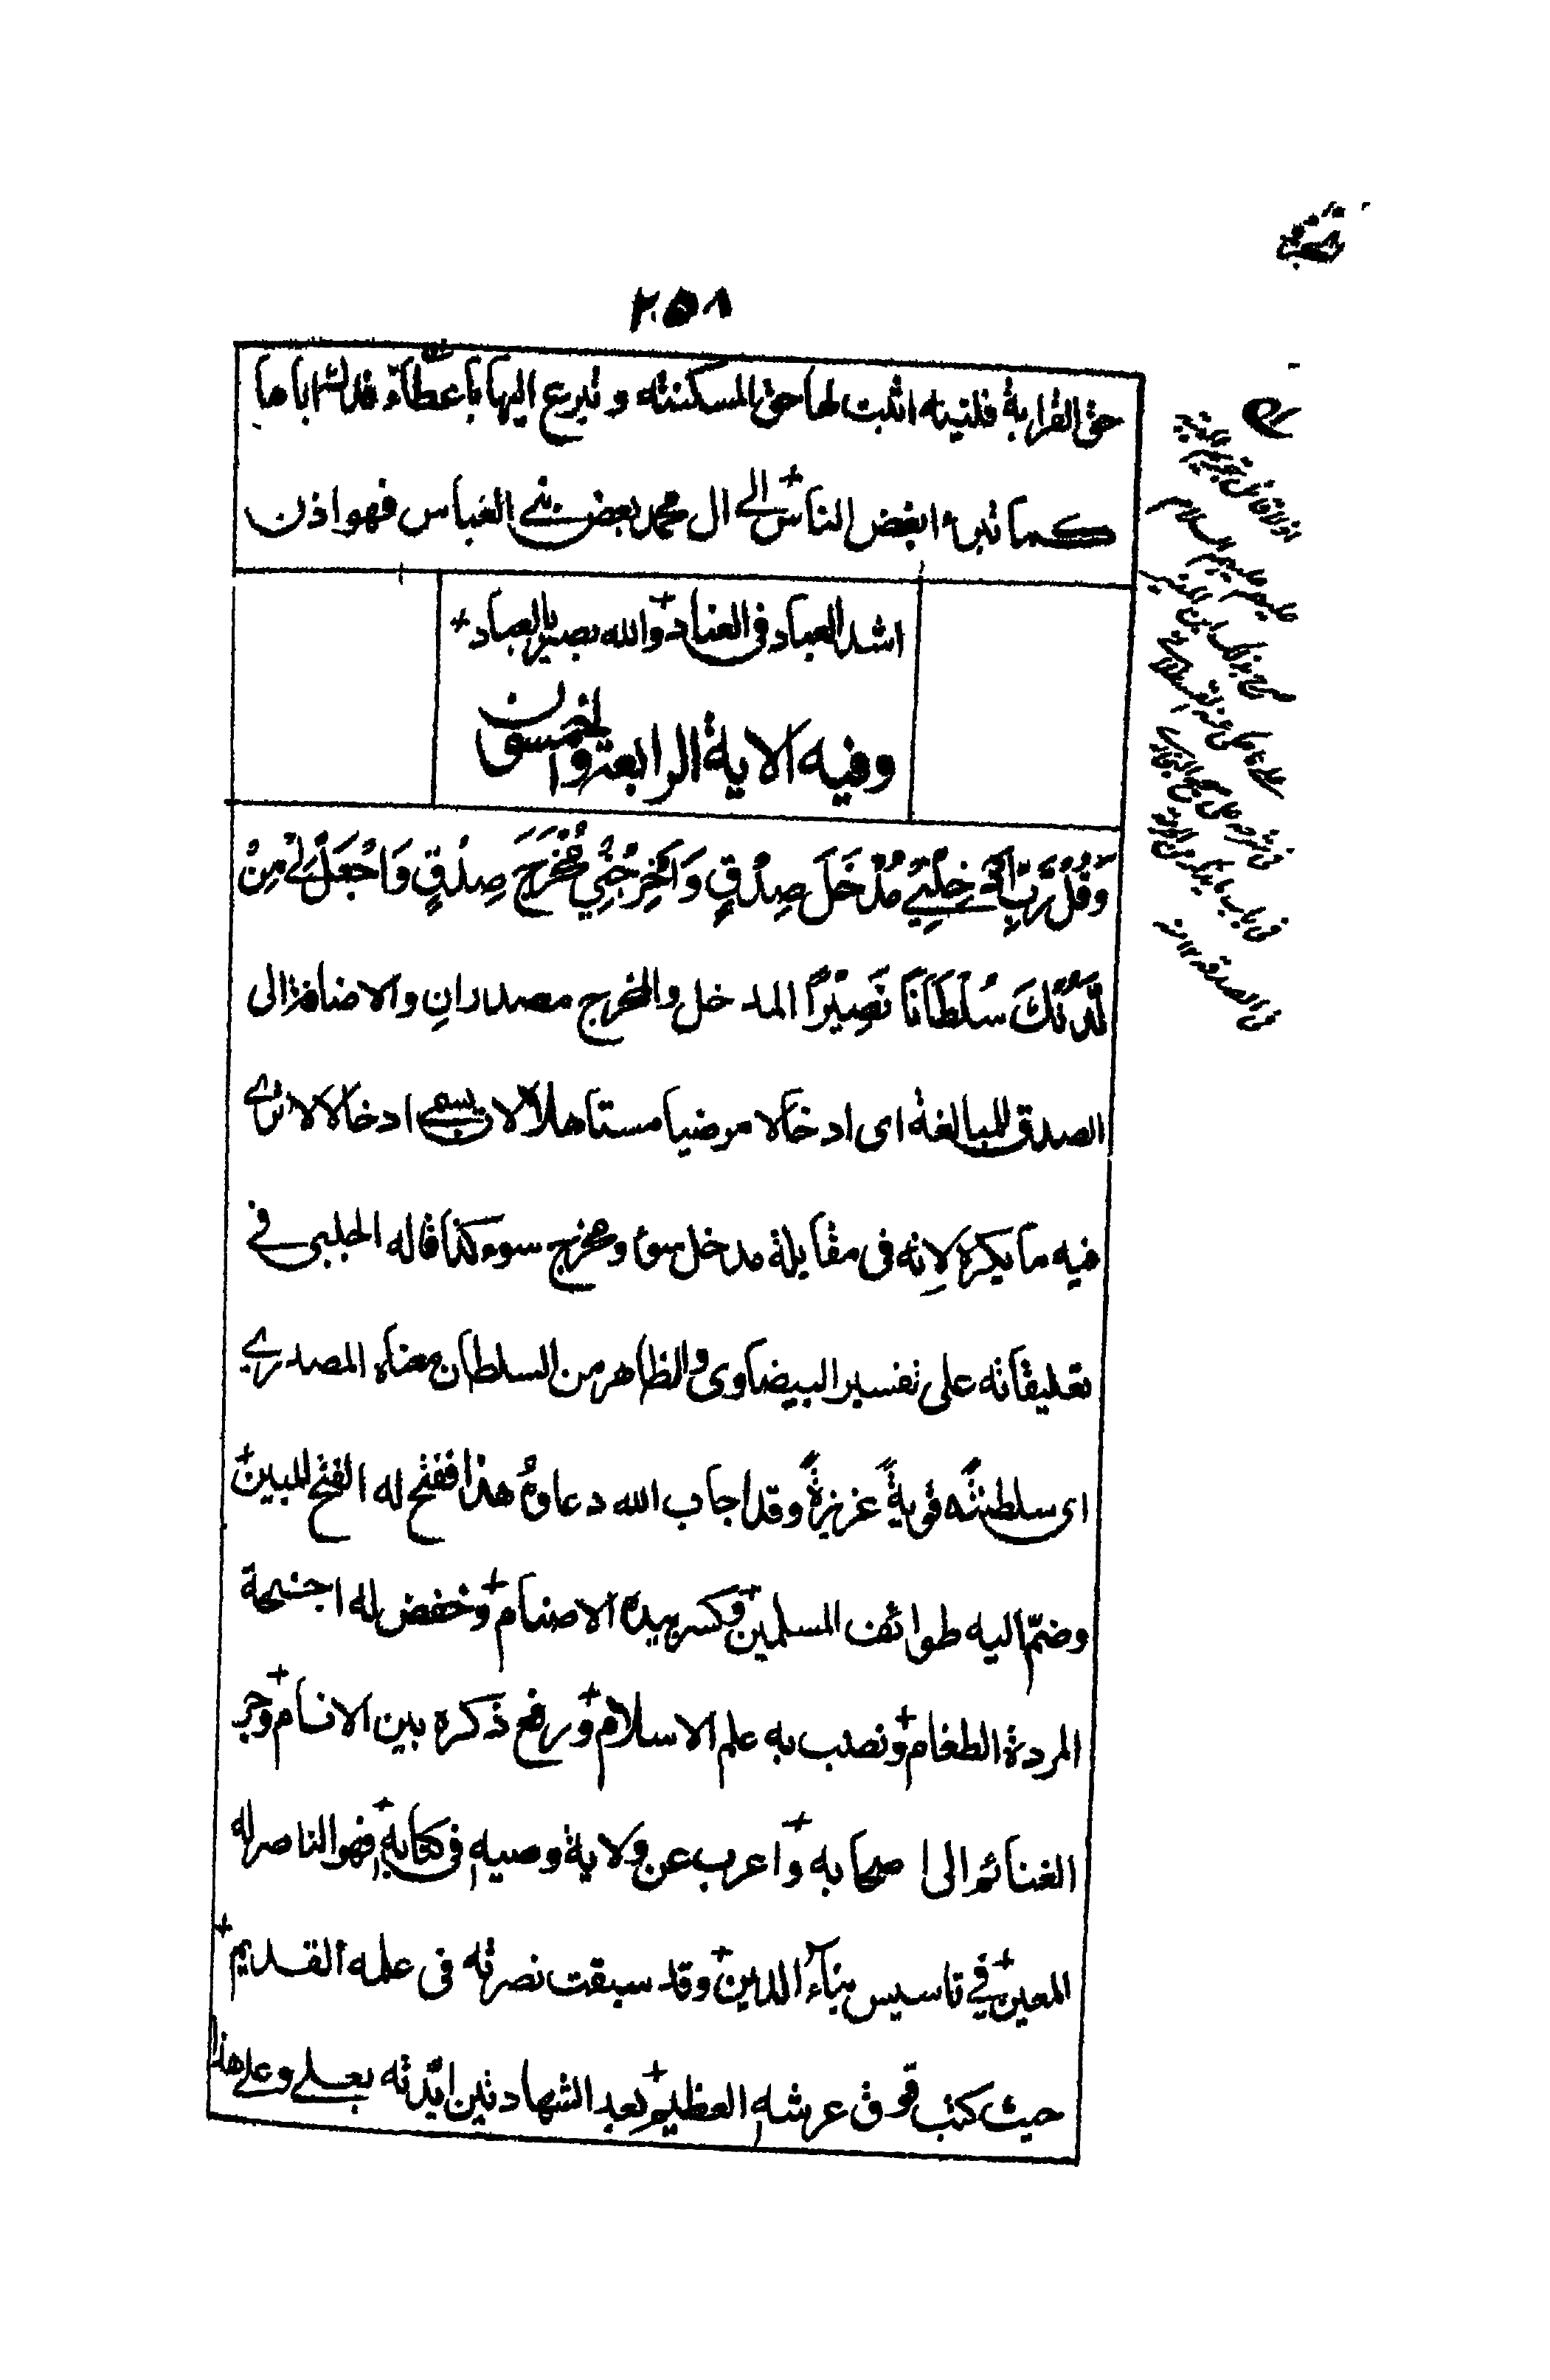 ٢٥٨
حق القرابة فلنینه اثبت لها حق المسكنته و تبرع اليها باعطاء فدك اباها
كما تبرء ابغض الناس الے ال محمد بعض بنے العباس فهو اذن
اشد العباد فى العناد والله بصير بالعباد
وفيه الاية الرابعة والخمسون
وَقُلْ رَّبِّ اَدْخِلْنِيْ مُدْخَلَ صِدْقٍ وَاَخْرِجْنِيْ مُخْرَجَ صِدْقٍ وَاجْعَلْ لِيْ مِنْ
لَّدُنْكَ سُلْطَانًا نَّصِيْرًا المدخل والمخرج مصدرانِ والاضافة الى
الصدق للمبالغة اى ادخالا مرضيا مستاهلا لان يسمے ادخالا لا ترے
فيه ما يكره لانه فى مقابلة مدخل سوء ومخرج سوء كذا قاله الجلبى فے
تعليقاته على تفسير البيضاوى والظاهر من السلطان معناه المصدرے
اى سلطنتًه قويةً عزيزةً وقد اجاب الله دعاوهُ هذا ففتح له الفتح المبين
وضمّ اليه طوائف المسلمين وكسر بيده الاصنام وخفض له اجنحة
المردة الطغام ونصب به علم الاسلام ورفع ذكره بين الانام وجر
الغنائم الى اصحابه واعرب عن ولاية وصيه فى كتابه فهو الناصر له
المعين فے تاسيس بناء الدين وقد سبقت نصرته فى علمه القديم
حيث كتب فوق عرشه العظيم بعد الشهادتين ايّدته بعلے وعلے هذا